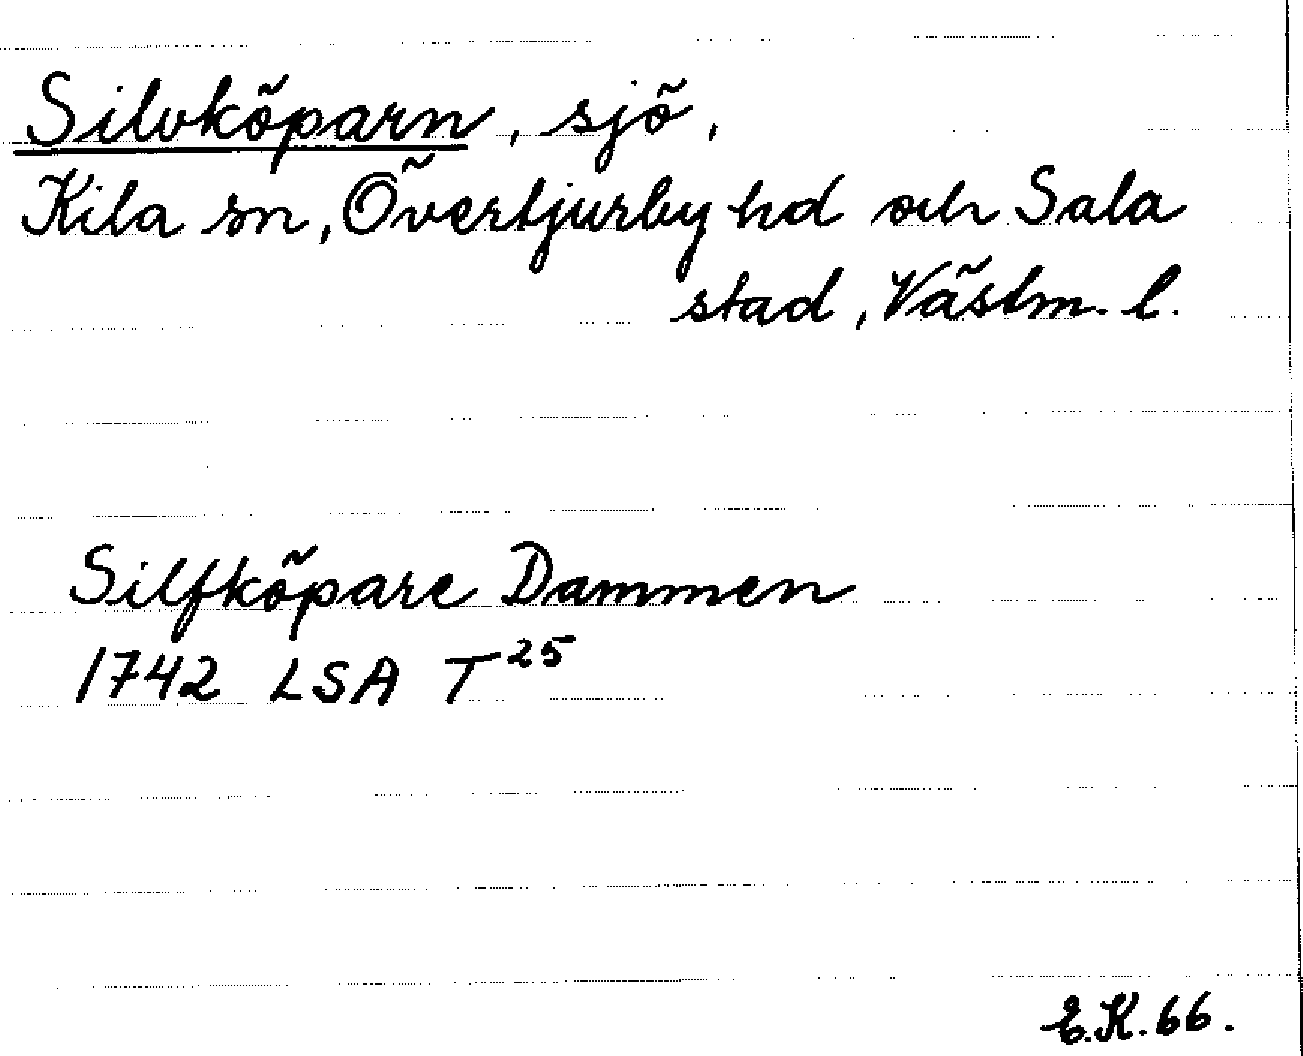 Silvköparn, sjö,
Kila sn, Övertjurby hd och Sala
stad, Västm. l.
Silfköpare Dammen
1742 LSA T²⁵
E.K. 66.